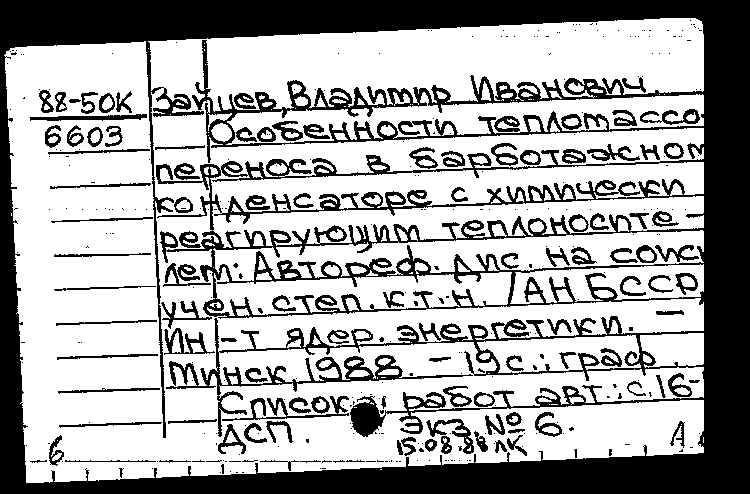 88-50К Зайцев, Владимир Иванович.
6603 Особенности тепломассо-
переноса в барботажном
конденсаторе с химически
реагирующим теплоносите-
лем: Автореф. дис. на соиск
учен. степ. к.т.н. /АН БССР,
Ин-т ядер. энергетики. —
Минск, 1988. - 19 с.: граф.
Список работ авт.: с. 16-
ДСП. Экз. № 6.
6 15.08.88 ЛК А